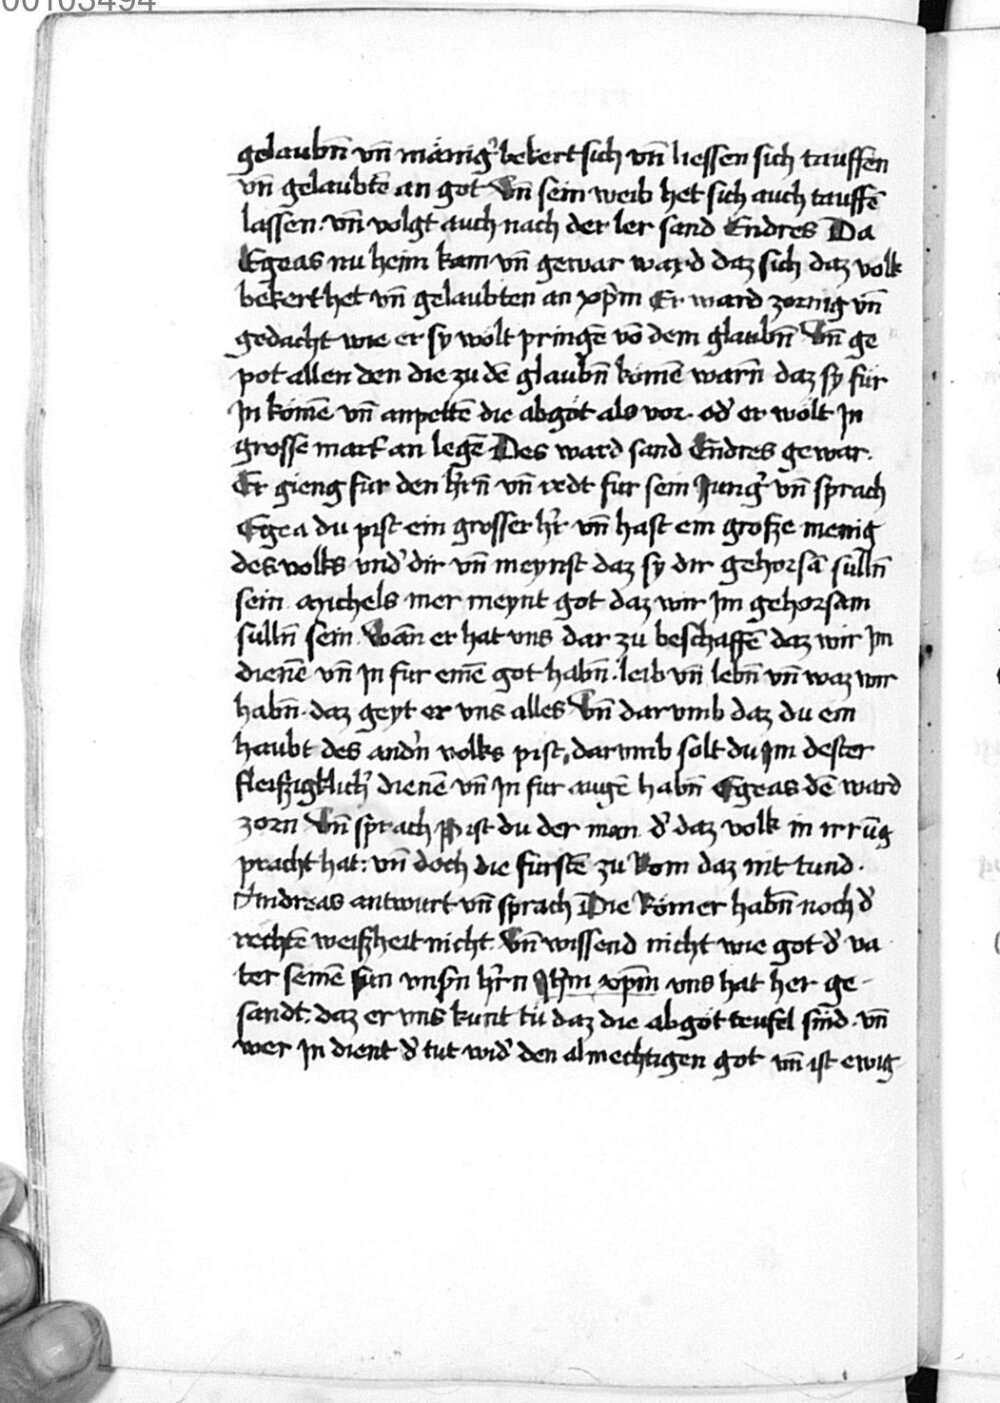 00103494
gelaubn̄ vn̄ mänig' bekert sich vn̄ liessen sich tauffen
vn̄ gelaubtē an got Vn̄ sein weib het sich auch tauffē
lassen. vn̄ volgt auch nach der ler sand Endres Da
Egeas nu heim kam vn̄ gewar ward daz sich daz volk
bekert het vn̄ gelaubten an xp̄m Er ward zornig vn̄
gedacht wie er sy wolt pringē vō dem glaubn̄ Vn̄ ge
pot allen den die zu dē glaubn̄ komē warn̄ daz sy für
In komē vn̄ anpettē die abgöt als vor. od' er wölt In
grossē mart' an legē Des ward sand Endres gewar.
Er gieng für den h'rn̄ vn̄ redt fur sein Jung' vn̄ sprach
Egea du pist ein grosser h'r vn̄ hast ein grosze menig
des volks vnd' dir vn̄ meynst daz sy dir gehorsā sülln̄
sein Michels mer meynt got daz wir Im gehorsam
sülln̄ sein. Wān er hat vns dar zu beschaffē daz wir Im
dienē vn̄ In fur einē got habn̄. leib vn̄ lebn̄ vn̄ waz wir
habn̄. daz geyt er vns alles Vn̄ darvmb daz du ein
haubt des and'n volks pist, darvmb solt du Im dester
fleiszigklich' dienē vn̄ In fur augē habn̄ Egeas dē ward
zorn Vn̄ sprach Pist du der man d' daz volk in irrūg
pracht hat: vn̄ doch die fürstē zu Rom daz nit tund.
Andreas antwurt vn̄ sprach Die Römer habn̄ noch d'
rechtē weiszheit nicht. Vn̄ wissend nicht wie got d' va
ter seinē sun vns'n h'rn Jh'm xp̄m vns hat her ge-
sandt: daz er vns kunt tü daz die abgöt teufel sind. vn̄
wer In dient d' tut wid' den almechtigen got vn̄ ist ewig